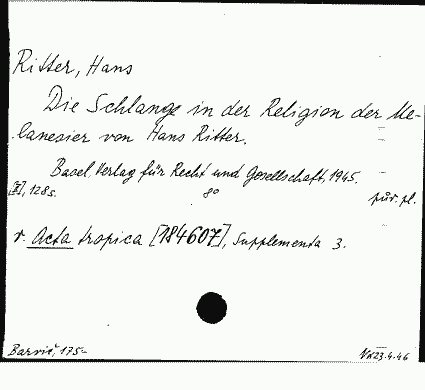 Ritter, Hans
Die Schlange in der Religion der Me-
lanesier von Hans Ritter.
Basel, Verlag für Recht und Gesellschaft, 1945.
[II], 128 s. 8° pův. pl.
v. Acta tropica [184607], Supplementa 3.
Barvič, 175.- 23.4.46